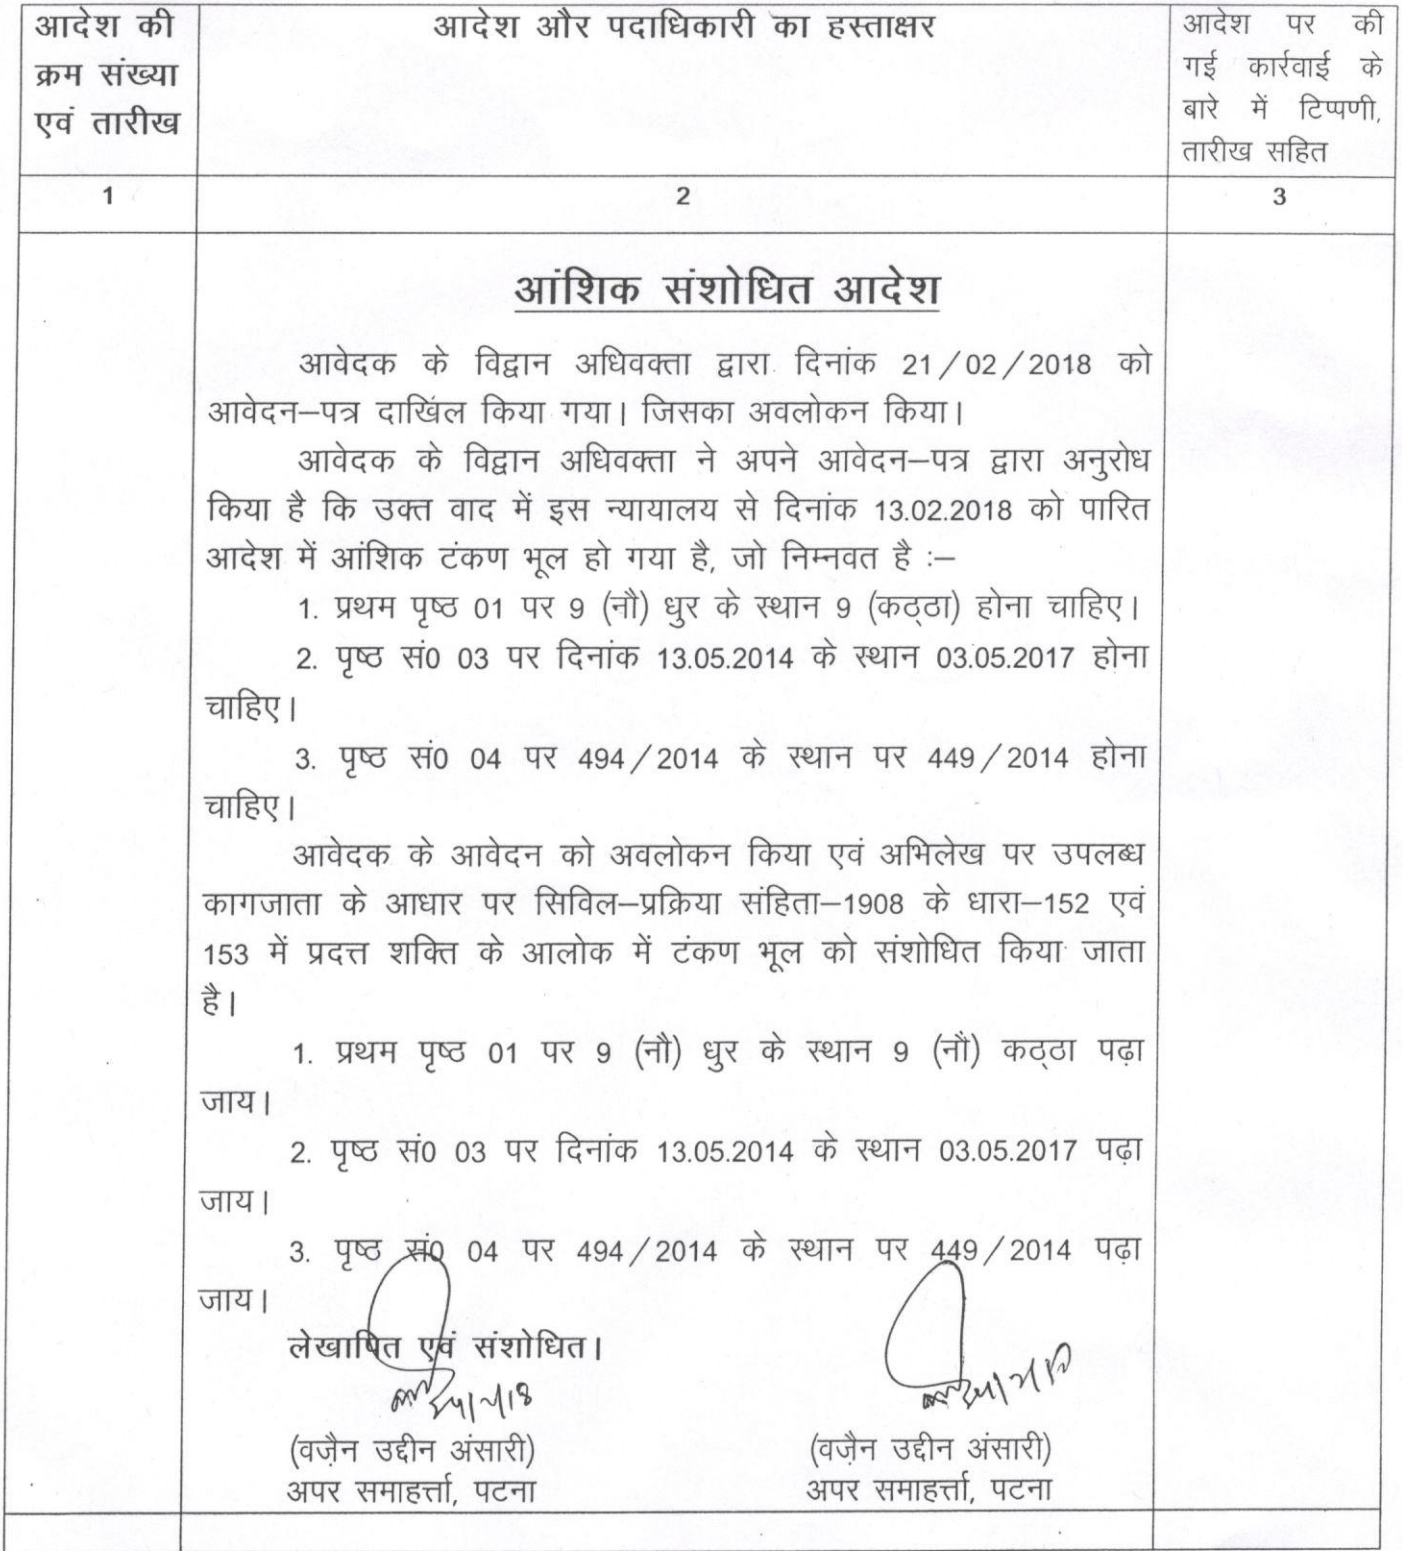 आदेश की
क्रम संख्या
एवं तारीख
आदेश और पदाधिकारी का हस्ताक्षर
आदेश पर की
गई कार्रवाई के
बारे में टिप्पणी,
तारीख सहित
1
2
3
आंशिक संशोधित आदेश
आवेदक के विद्वान अधिवक्ता द्वारा दिनांक 21/02/2018 को
आवेदन–पत्र दाखिल किया गया। जिसका अवलोकन किया।
आवेदक के विद्वान अधिवक्ता ने अपने आवेदन–पत्र द्वारा अनुरोध
किया है कि उक्त वाद में इस न्यायालय से दिनांक 13.02.2018 को पारित
आदेश में आंशिक टंकण भूल हो गया है, जो निम्नवत है :–
1. प्रथम पृष्ठ 01 पर 9 (नौ) धुर के स्थान 9 (कट्ठा) होना चाहिए।
2. पृष्ठ सं0 03 पर दिनांक 13.05.2014 के स्थान 03.05.2017 होना
चाहिए।
3. पृष्ठ सं0 04 पर 494/2014 के स्थान पर 449/2014 होना
चाहिए।
आवेदक के आवेदन को अवलोकन किया एवं अभिलेख पर उपलब्ध
कागजाता के आधार पर सिविल–प्रक्रिया संहिता–1908 के धारा–152 एवं
153 में प्रदत्त शक्ति के आलोक में टंकण भूल को संशोधित किया जाता
है।
1. प्रथम पृष्ठ 01 पर 9 (नौ) धुर के स्थान 9 (नौ) कट्ठा पढ़ा
जाय।
2. पृष्ठ सं0 03 पर दिनांक 13.05.2014 के स्थान 03.05.2017 पढ़ा
जाय।
3. पृष्ठ सं0 04 पर 494/2014 के स्थान पर 449/2014 पढ़ा
जाय।
लेखापित एवं संशोधित।
(वज़ैन उद्दीन अंसारी)
अपर समाहर्त्ता, पटना
(वज़ैन उद्दीन अंसारी)
अपर समाहर्त्ता, पटना